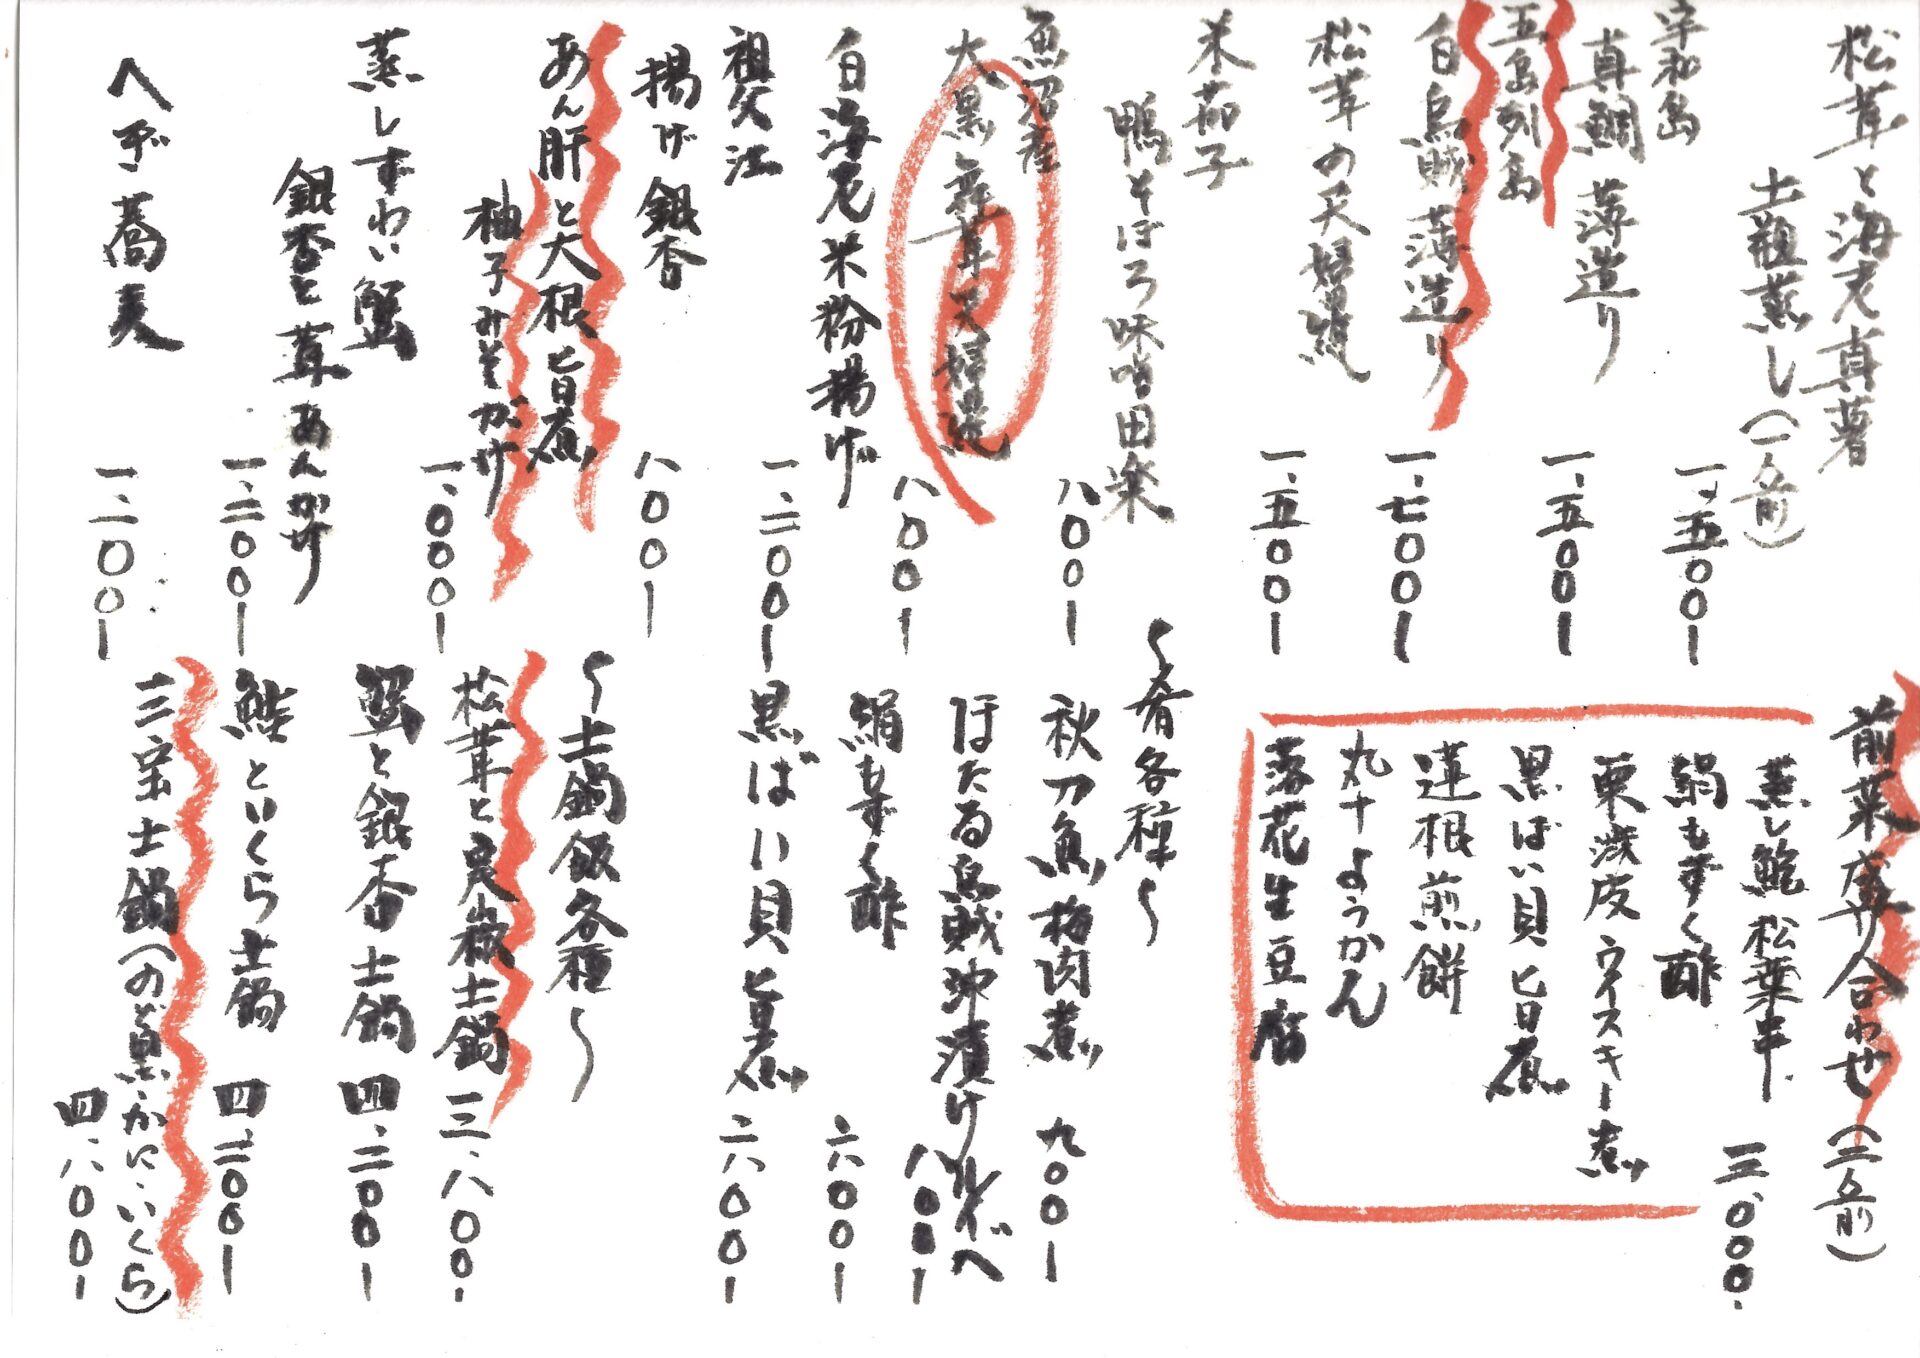 松茸と海老真薯
土瓶蒸し(一人前)
一、五〇〇ー
宇和島
真鯛 薄造り
一、五〇〇ー
五島列島
白烏賊 薄造り
一、七〇〇ー
松茸の天婦羅
一、五〇〇ー
米茄子
鴨そぼろ味噌田楽
八〇〇ー
魚沼産
大黒舞茸天婦羅
八〇〇ー
白海老米粉揚げ
一、二〇〇ー
祖父江
揚げ銀杏
八〇〇ー
あん肝と大根旨煮
柚子みそがけ
一、〇〇〇ー
蒸しずわい蟹
銀杏と茸あんかけ
一、二〇〇ー
へぎ蕎麦
一、二〇〇ー
前菜盛り合わせ(二人前)
三、〇〇〇ー
蒸し鮑松葉串
絹もずく酢
栗渋皮ウイスキー煮
黒ばい貝旨煮
蓮根煎餅
丸十ようかん
落花生豆腐
〜肴各種〜
秋刀魚梅肉煮 九〇〇ー
ほたる烏賊沖漬けルイベ 八〇〇ー
絹もずく酢 六〇〇ー
黒ばい貝旨煮 六〇〇ー
〜土鍋飯各種〜
松茸と実山椒土鍋 三、八〇〇ー
蟹と銀杏土鍋 四、二〇〇ー
鮭といくら土鍋 四、二〇〇ー
三宝土鍋(のど黒・かに・いくら)
四、八〇〇ー